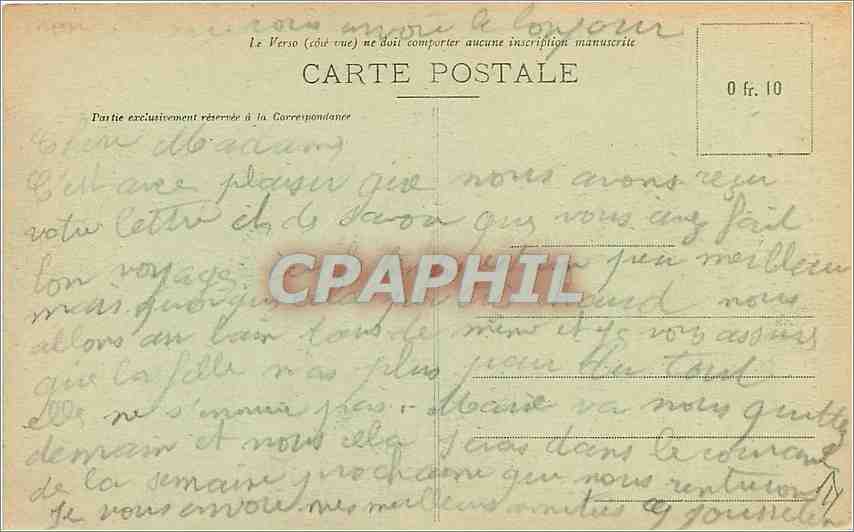 vous envoie le bonjour
Le Verso (côté vue) ne doit comporter aucune inscription manuscrite
CARTE POSTALE
0 fr. 10
Partie exclusivement réservée à la Correspondance
Chère Madame
C'est avec plaisir que nous avons reçu
votre lettre et de savoir que vous avez fait
bon voyage. un peu meilleur
mais nous
allons au bain tous de même et je vous assure
que la fille n'as plus peur du tout
elle ne s'ennuie pas. Marie va nous quitter
demain et nous cela seras dans le courant
de la semaine prochaine que nous rentrerons
Je vous envoie mes meilleurs amitiés
CPAPHIL